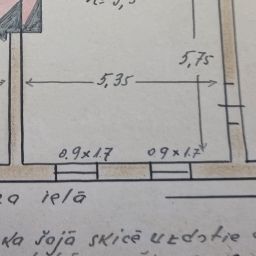 5,75
5,35
0.9x1.7 0.9x1.7
ielā
ka šajā skicē uzdotie